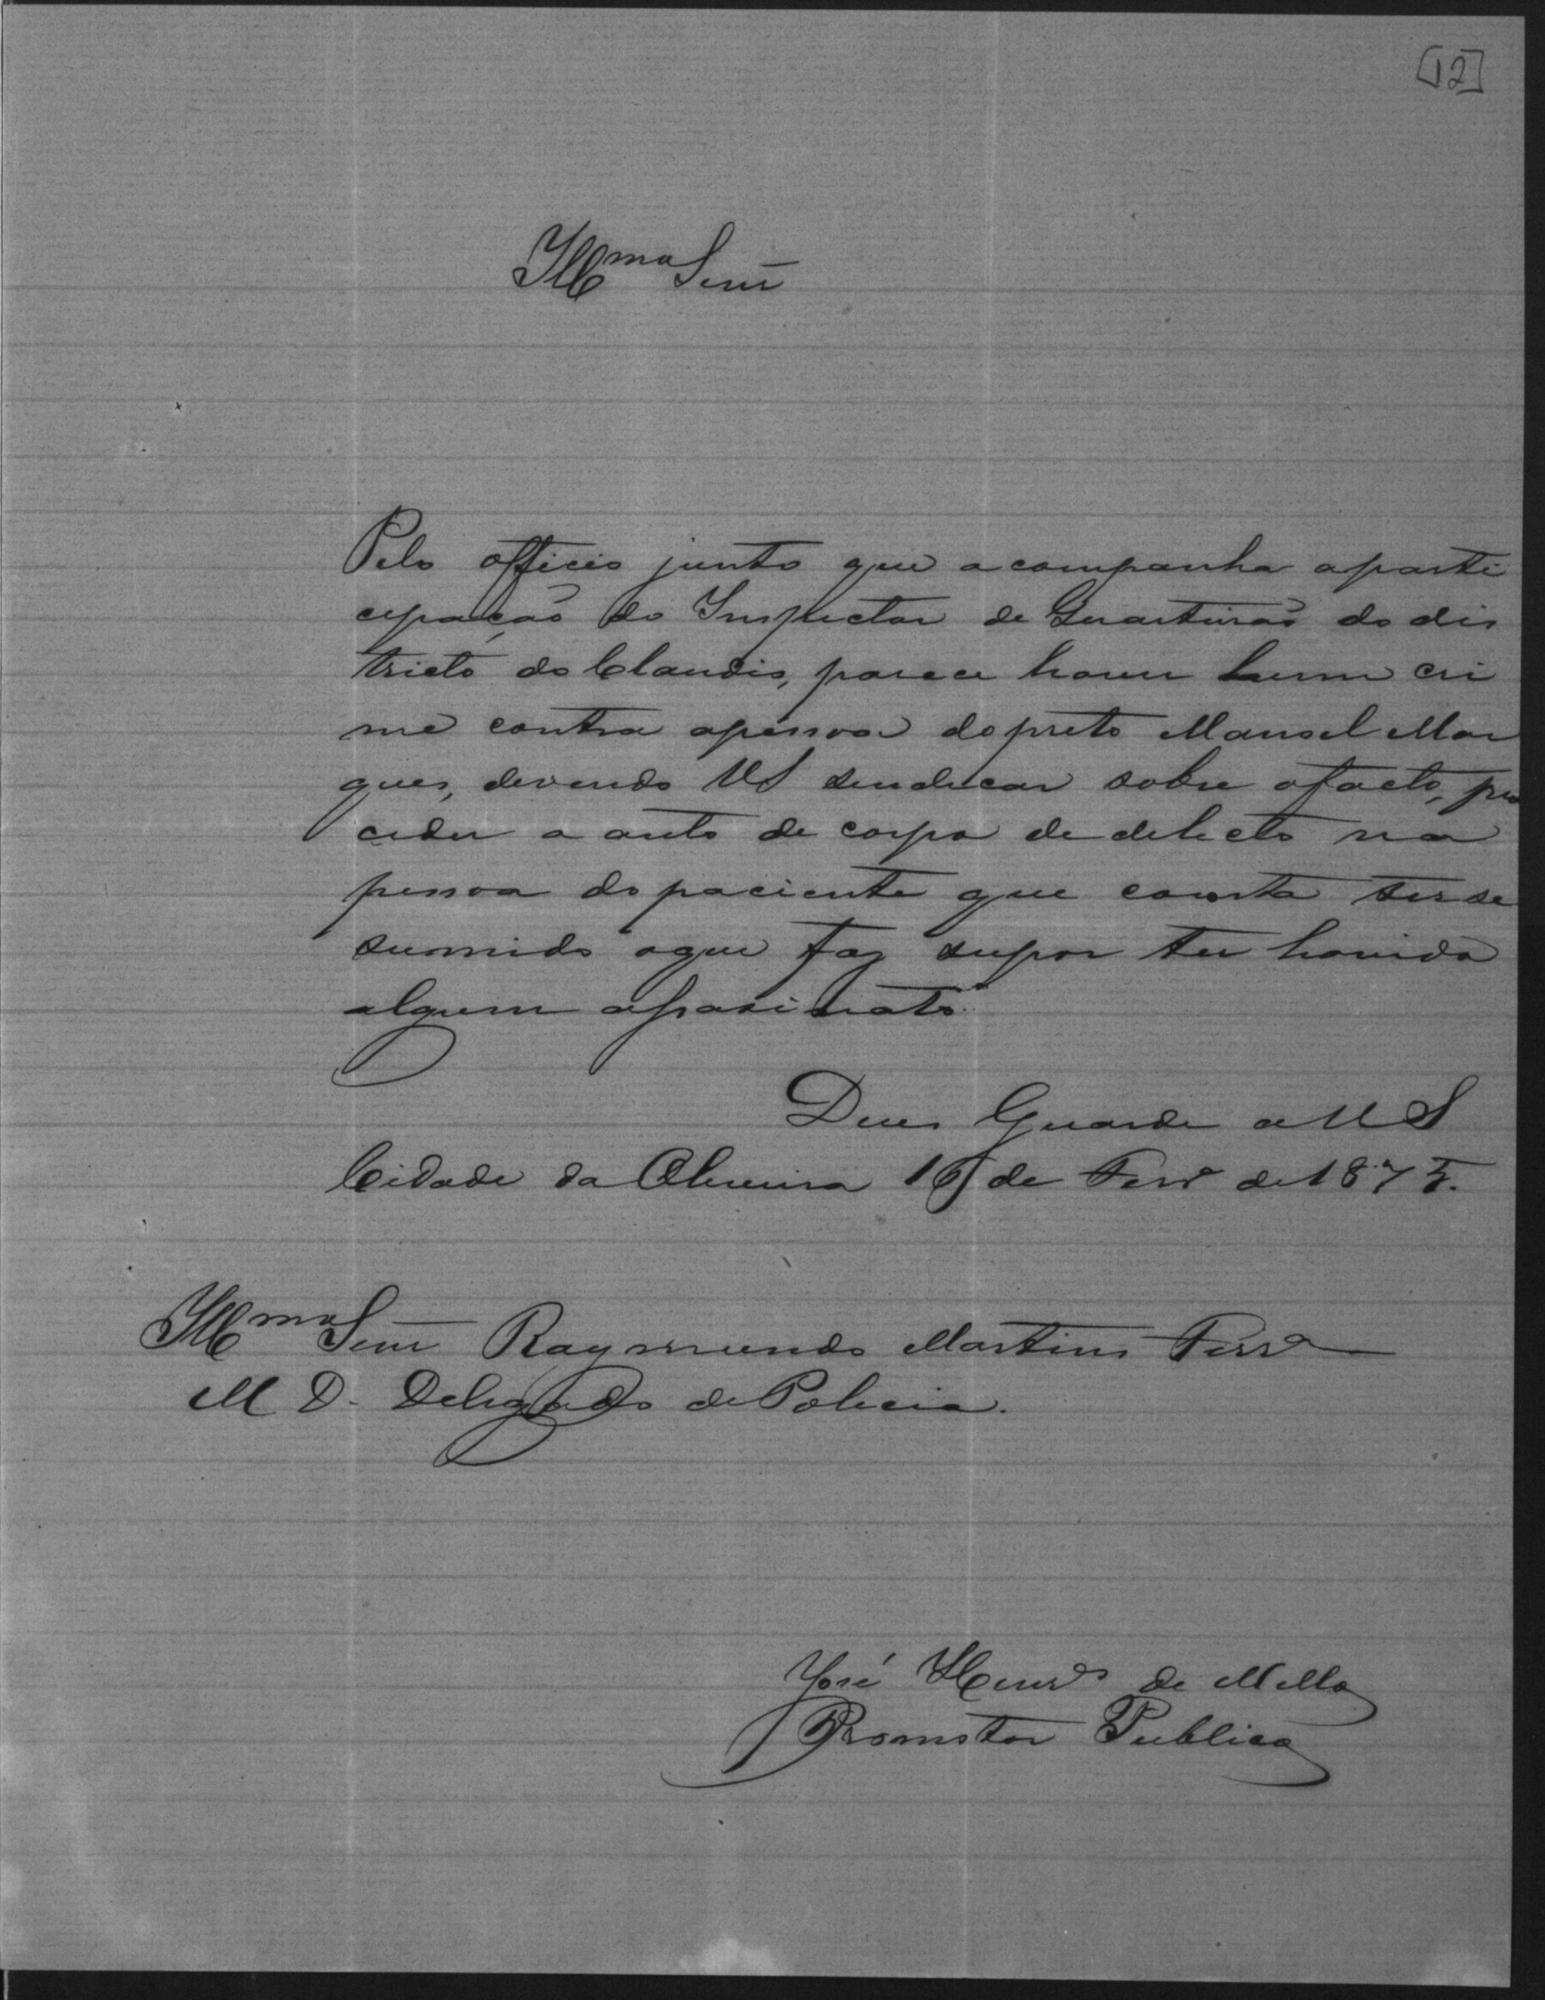 [12]
Illmo Senr
Pelo officio junto que acompanha aparti
cipação do Inspector de Quarteirão do dis
tricto do Claudio, parece haver hum cri
me contra apessoa dopreto Manoel Mar
ques, devendo VS sendicar sobre ofacto, pro
ceder a auto de corpo de delicto na
pessoa do paciente que consta terse
sumido oque faz supor ter havido
algum assasinato
Deus Guarde a VS
Cidade da Oliveira 16 de Fevro de 1875.
Illmo Senr Raymundo Martins Ferra
M D. Delegado de Policia.
José Henrs de Mello
Promotor Publico